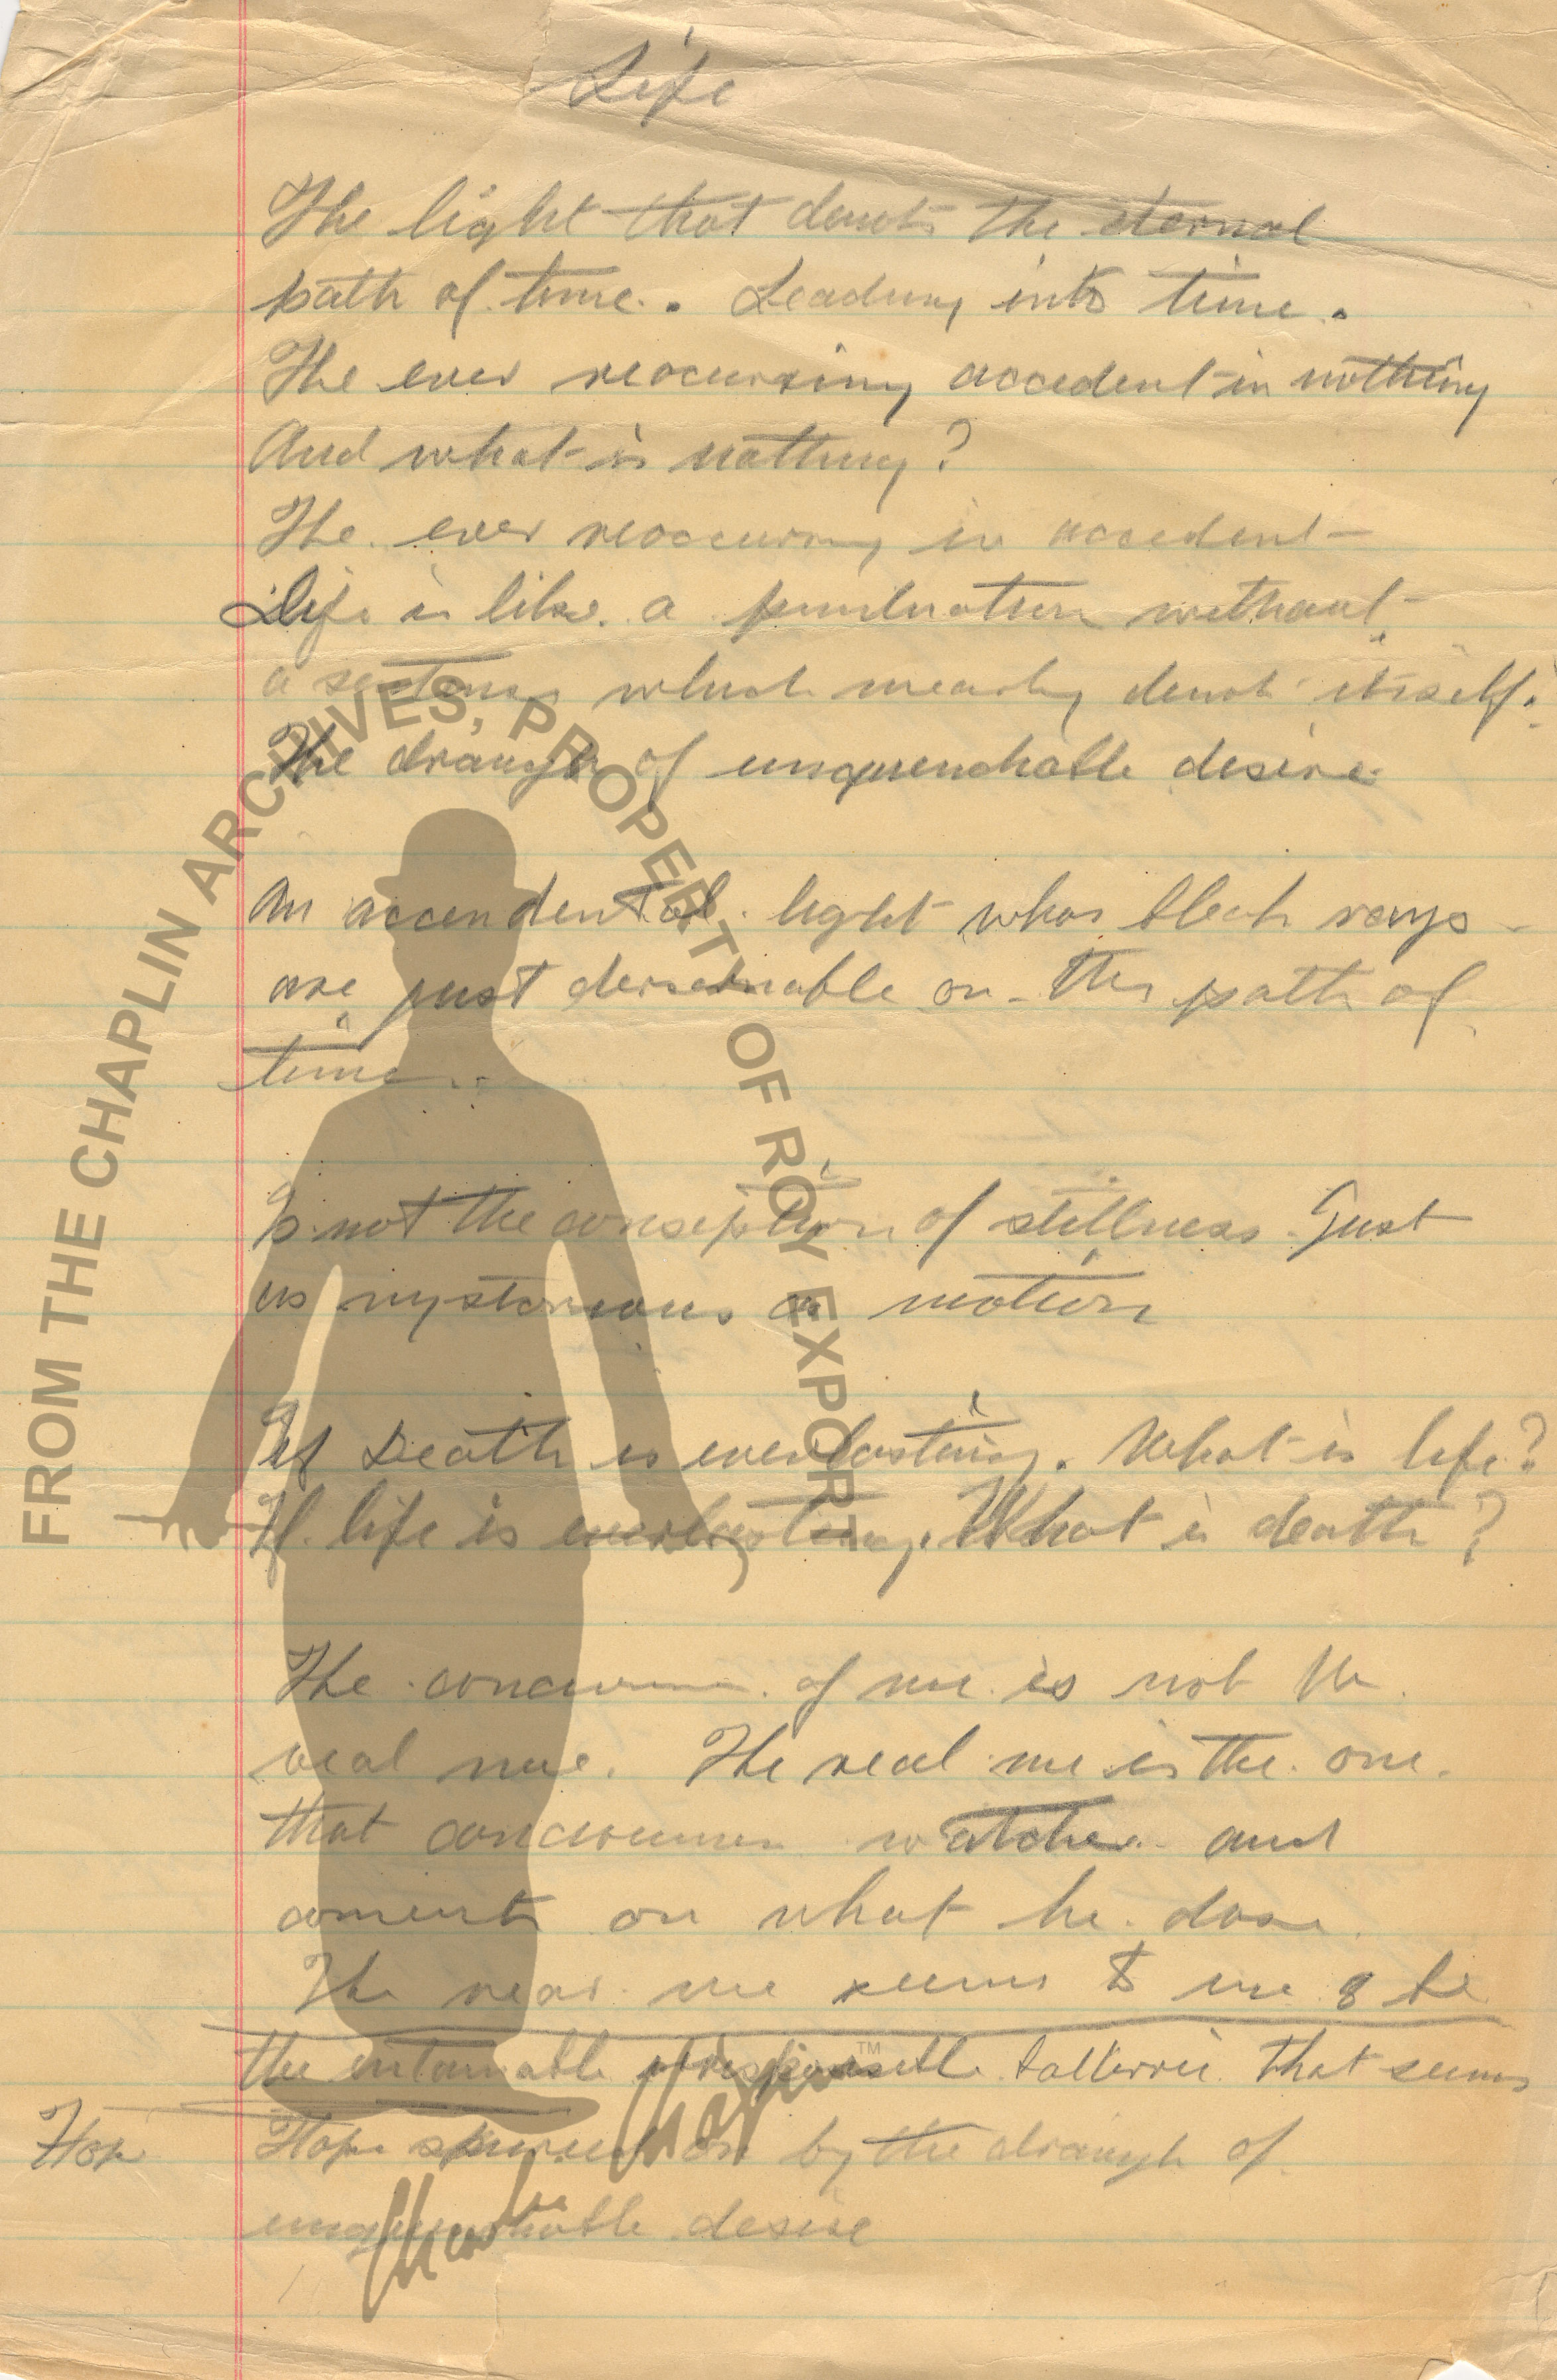 Life
The light that denots the eternal
path of time. Leading into time.
The ever reocurring accedent in nothing
And what is nothing?
The ever reoccuring in accedent
Life is like a puntuation without
a which denots itself.
The draugh of unquenchable desire
An accendental light whos bleak rays
are just dersernable on the path of
time.
Is not the conseption of stillness just
as mysterious as motion
If Death is everlasting. What is life?
If life is everlasting. What is death?
The of me is not the
real me. The real me is the one
that watches and
coments on what he dose
The real me seems to me to be
the that seems
Hop
Hope spurred on by the draugh of
unquenchable desire
FROM THE CHAPLIN ARCHIVES, PROPERTY OF ROY EXPORT
Charlie Chaplin
TM